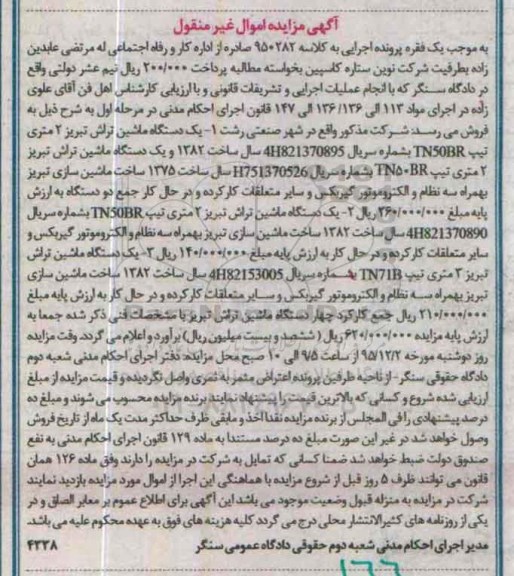 آگهی مزایده اموال غیر منقول
به موجب یک فقره پرونده اجرایی به کلاسه ۹۵۰۲۸۲ صادره از اداره کار و رفاه اجتماعی له مرتضی عابدین
زاده بطرفیت شرکت نوین ستاره کاسپین بخواسته مطالبه پرداخت ۲۰۰/۰۰۰ ریال نیم عشر دولتی واقع
در دادگاه سنگر که با انجام عملیات اجرایی و تشریفات قانونی و با ارزیابی کارشناس اهل فن آقای علوی
زاده در اجرای مواد ۱۱۳ الی ۱۳۶/ ۱۳۶ الی ۱۴۷ قانون اجرای احکام مدنی در مرحله اول به شرح ذیل به
فروش می رسد: شرکت مذکور واقع در شهر صنعتی رشت ۱- یک دستگاه ماشین تراش تبریز ۲ متری
تیپ TN50BR بشماره سریال 4H821370895 سال ساخت ۱۳۸۲ و یک دستگاه ماشین تراش تبریز
۲ متری تیپ TN۵۰BR بشماره سریال H751370526 ساخت ۱۳۷۵ ساخت ماشین سازی تبریز
بهمراه سه نظام و الکتروموتور گیربکس و سایر متعلقات کار کرده و در حال کار جمع دو دستگاه به ارزش
پایه مبلغ ۲۶۰/۰۰۰/۰۰۰ ریال ۲- یک دستگاه ماشین تراش تبریز ۲ متری تیپ TN50BR بشماره سریال
4H821370890 سال ساخت ۱۳۸۲ ساخت ماشین سازی تبریز بهمراه سه نظام و الکتروموتور گیربکس و
سایر متعلقات کار کرده و در حال کار به ارزش پایه مبلغ ۱۴۰/۰۰۰/۰۰۰ ریال ۳- یک دستگاه ماشین تراش
تبریز ۳ متری تیپ TN71B بشماره سریال 4H82153005 سال ساخت ۱۳۸۲ ساخت ماشین سازی
تبریز بهمراه سه نظام و الکتروموتور گیربکس و سایر متعلقات کار کرده و در حال کار به ارزش پایه مبلغ
۲۱۰/۰۰۰/۰۰۰ ریال جمع کارکرد چهار دستگاه ماشین تراش تبریز با مشخصات فنی ذکر شده جمعا به
ارزش پایه مزایده ۶۲۰/۰۰۰/۰۰۰ ریال ( ششصد و بیست میلیون ریال) برآورد و اعلام می گردد وقت مزایده
روز دوشنبه مورخه ۹۵/۱۲/۲ از ساعت ۹/۵ الی ۱۰ صبح محل مزایده: دفتر اجرای احکام مدنی شعبه دوم
دادگاه حقوقی سنگر - از ناحیه طرفین پرونده اعتراض مثمر به ثمری واصل نگردیده و قیمت مزایده از مبلغ
ارزیابی شده شروع و کسانی که بالاترین قیمت را پیشنهاد نمایند برنده مزایده محسوب می شوند و مبلغ ده
درصد پیشنهادی را فی المجلس از برنده مزایده نقدا اخذ و مابقی ظرف حداکثر مدت یک ماه از تاریخ فروش
وصول خواهد شد در غیر این صورت مبلغ ده درصد مستندا به ماده ۱۲۹ قانون اجرای احکام مدنی به نفع
صندوق دولت ضبط خواهد شد ضمنا کسانی که تمایل به شرکت در مزایده را دارند وفق ماده ۱۲۶ همان
قانون می توانند ظرف ۵ روز قبل از شروع مزایده با هماهنگی این اجرا از اموال مورد مزایده بازدید نمایند
شرکت در مزایده به منزله قبول وضعیت موجود می باشد این آگهی برای اطلاع عموم بر معابر الصاق و در
یکی از روزنامه های کثیرالانتشار محلی درج می گردد کلیه هزینه های فوق به عهده محکوم علیه می باشد.
مدیر اجرای احکام مدنی شعبه دوم حقوقی دادگاه عمومی سنگر ۴۳۲۸